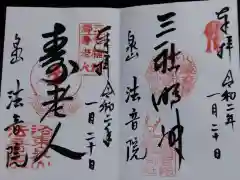 奉拝
令和二年
一月二十日
三社明神
泉山
法音院
奉拝
令和二年
一月二十日
寿老人
泉山
法音院